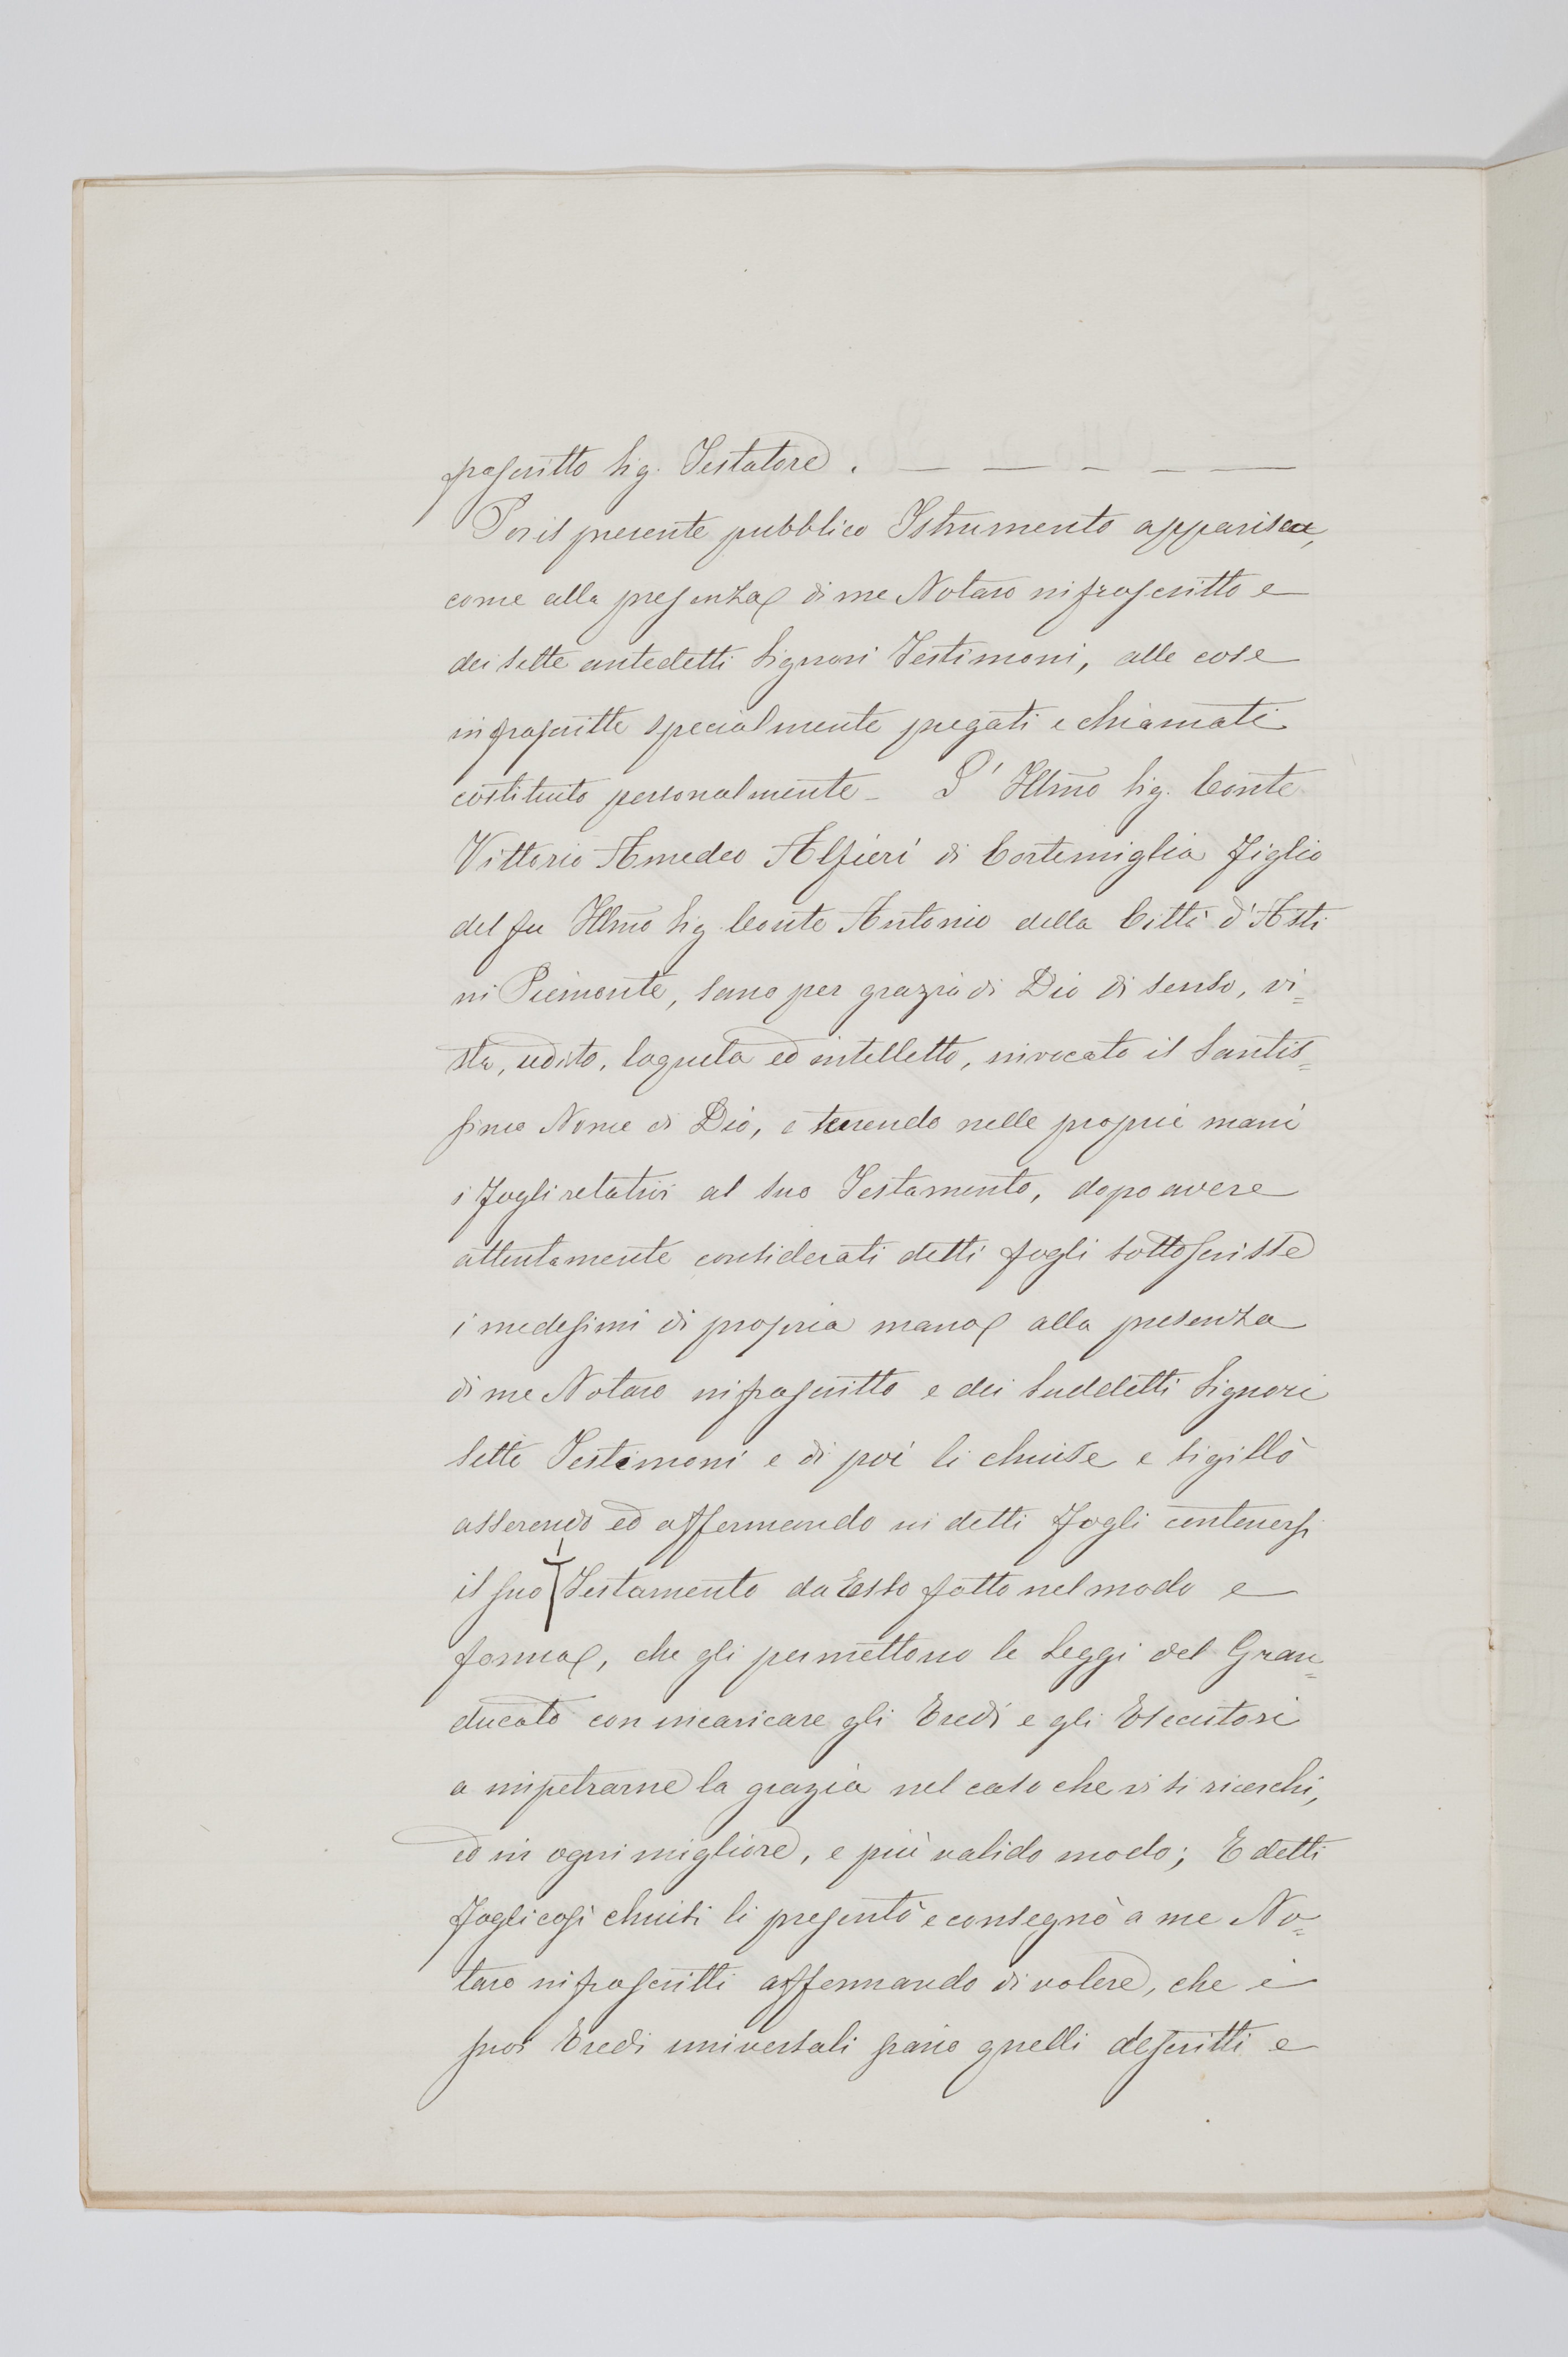 frascritto Sig. Testatore. — — — — —
Per il presente pubblico Istrumento apparisca,
come alla presenza di me Notaro infrascritto e
dei sette antedetti Signori Testimoni, alle cose
infrascritte specialmente pregati e chiamati
costituito personalmente - L' Illmo Sig. Conte
Vittorio Amedeo Alfieri di Cortemiglia Figlio
del fu Illmo Sig. Conte Antonio della Città d'Asti
in Piemonte, sano per grazia di Dio di senso, vi=
sta, udito, loquela ed intelletto, invocato il Santis=
simo Nome di Dio, e tenendo nelle proprie mani
i Fogli relativi al suo Testamento, dopo avere
attentamente considerati detti fogli sottoscrisse
i medesimi di propria mano alla presenza
di me Notaro infrascritto e dei suddetti Signori
Sette Testimoni e di poi li chiuse e sigillò
asserendo ed affermando in detti Fogli contenersi
il suo Testamento da Esso fatto nel modo e
forma, che gli permettono le Leggi del Gran=
ducato con incaricare gli Eredi e gli Esecutori
a impetrarne la grazia nel caso che vi si ricerchi,
ed in ogni migliore, e più valido modo; E detti
Fogli così chiusi li presentò e consegnò a me No=
taro infrascritti affermando di volere, che i
suoi Eredi universali siano quelli descritti e